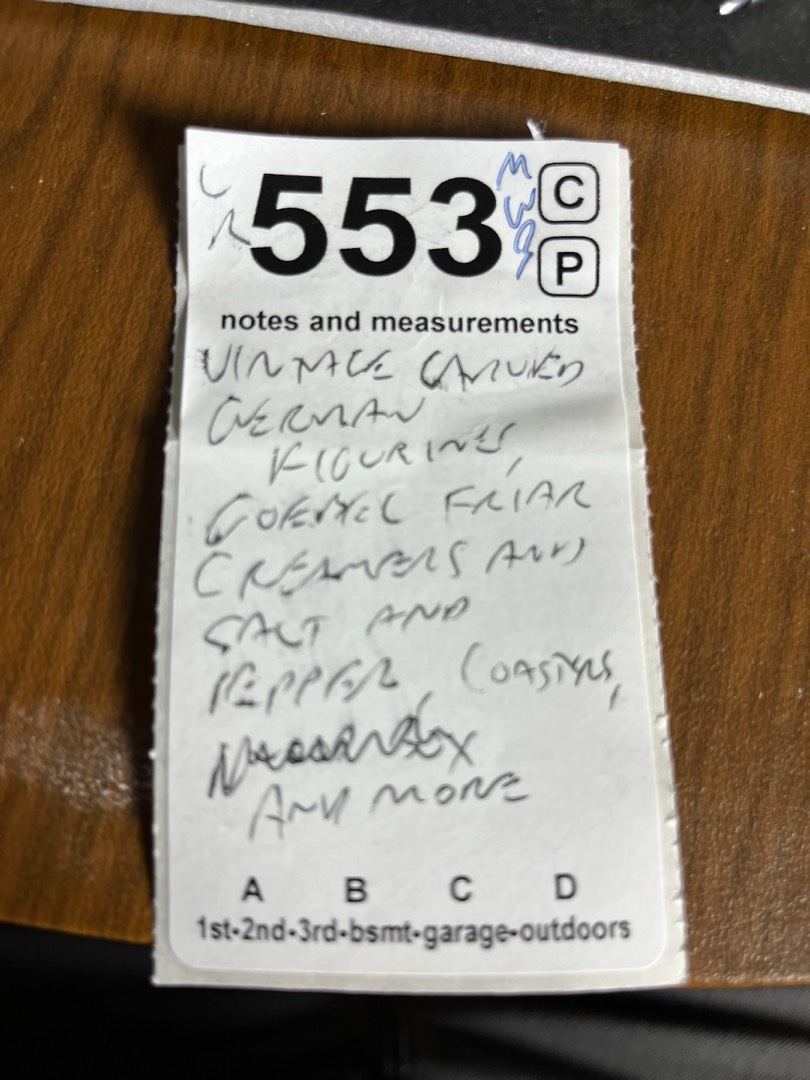 LR 553 MWB C
P
notes and measurements
VINTAGE CARVED
GERMAN
FIGURINES,
GOEBEL FRIAR
CREAMERS AND
SALT AND
PEPPER, COASTERS,
AND MORE
A B C D
1st-2nd-3rd-bsmt-garage-outdoors